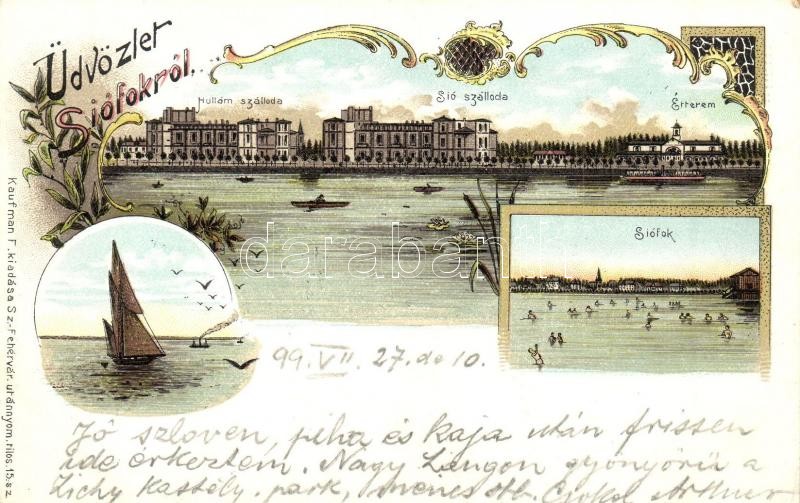 Üdvözlet
Siófokról...
Hullám szálloda
Sió szálloda
Étterem
Siófok
darabanth
Kaufman F. kiadása Sz.-Fehérvár. utánnyom. tilos. 15. sz
99. VII. 27. de 10.
Jó szloven, piha és kaja után frissen
ide érkeztem. Nagy Lángon gyönyörű a
Zichy kastély, park, ménes stb. Csókol